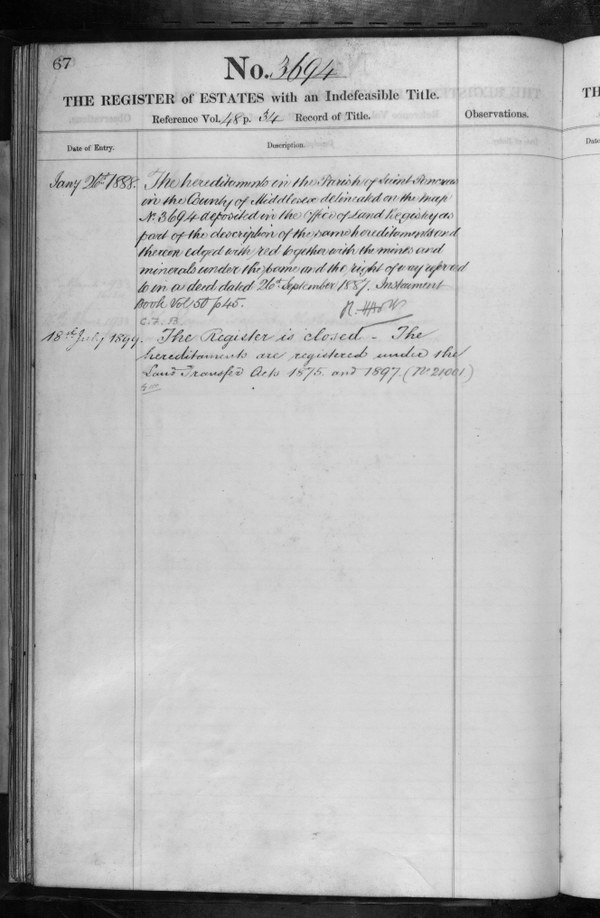 67
No. 3694
THE REGISTER of ESTATES with an Indefeasible Title.
Reference Vol. 48 p. 34 Record of Title.
Observations.
Date of Entry.
Description.
Jany 26th 1888. The hereditaments in the Parish of Saint Pancras
in the County of Middlesex delineated on the map
No. 3694 deposited in the Office of Land Registry as
part of the description of the same hereditaments and
thereon edged with red together with the mines and
minerals under the same and the right of way referred
to in a deed dated 26th September 1887. Instrument
book Vol 50 p 45.
C. F. B
18th July 1899. The Register is closed - The
hereditaments are registered under the
Land Transfer Acts 1875 and 1897 (No 21001)
TH